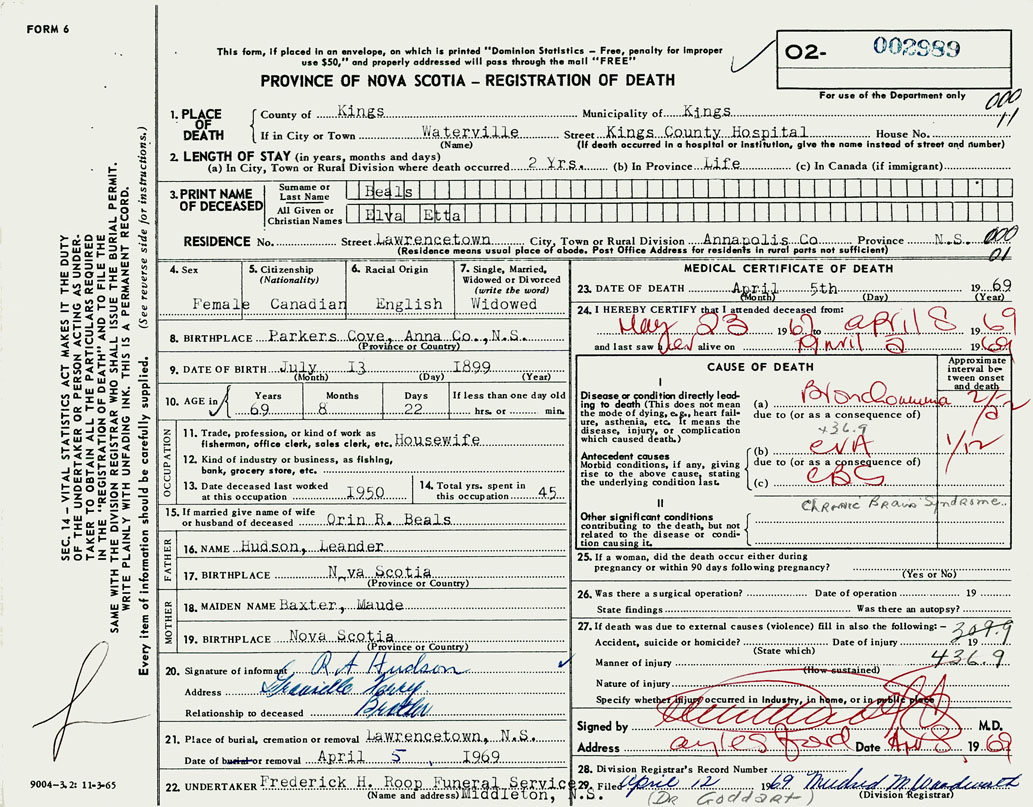 FORM 6
This form, if placed in an envelope, on which is printed "Dominion Statistics – Free, penalty for improper
use $50," and properly addressed will pass through the mail "FREE"
PROVINCE OF NOVA SCOTIA – REGISTRATION OF DEATH
O2- 002989
For use of the Department only
000
11
1. PLACE OF DEATH
County of Kings Municipality of Kings
If in City or Town Waterville Street Kings County Hospital House No.
(Name) (If death occurred in a hospital or institution, give the name instead of street and number)
2. LENGTH OF STAY (in years, months and days)
(a) In City, Town or Rural Division where death occurred 2 Yrs. (b) In Province Life (c) In Canada (if immigrant)
3. PRINT NAME OF DECEASED
Surname or Last Name Beals
All Given or Christian Names Elva Etta
RESIDENCE No. Street Lawrencetown City, Town or Rural Division Annapolis Co. Province N.S. 000
(Residence means usual place of abode. Post Office Address for residents in rural parts not sufficient) 01
4. Sex Female
5. Citizenship (Nationality) Canadian
6. Racial Origin English
7. Single, Married, Widowed or Divorced (write the word) Widowed
8. BIRTHPLACE Parkers Cove, Anna Co., N.S.
(Province or Country)
9. DATE OF BIRTH July 13 1899
(Month) (Day) (Year)
10. AGE in Years 69 Months 8 Days 22 If less than one day old hrs. or min.
OCCUPATION
11. Trade, profession, or kind of work as
fisherman, office clerk, sales clerk, etc. Housewife
12. Kind of industry or business, as fishing,
bank, grocery store, etc.
13. Date deceased last worked
at this occupation 1950
14. Total yrs. spent in
this occupation 45
15. If married give name of wife
or husband of deceased Orin R. Beals
FATHER
16. NAME Hudson, Leander
17. BIRTHPLACE N va Scotia
(Province or Country)
MOTHER
18. MAIDEN NAME Baxter, Maude
19. BIRTHPLACE Nova Scotia
(Province or Country)
20. Signature of informant R A Hudson
Address Granville Ferry
Relationship to deceased Brother
21. Place of burial, cremation or removal Lawrencetown, N.S.
Date of burial or removal April 5, 1969
22. UNDERTAKER Frederick H. Roop Funeral Service
(Name and address) Middleton, N.S.
MEDICAL CERTIFICATE OF DEATH
23. DATE OF DEATH April 5th 1969
(Month) (Day) (Year)
24. I HEREBY CERTIFY that I attended deceased from:
May 23 1967 to April 8 1969
and last saw her alive on April 2 1969
CAUSE OF DEATH
Approximate interval between onset and death
I
Disease or condition directly leading to death (This does not mean the mode of dying, e.g., heart failure, asthenia, etc. It means the disease, injury, or complication which caused death.)
(a)
due to (or as a consequence of)
436.9
Antecedent causes
Morbid conditions, if any, giving rise to the above cause, stating the underlying condition last.
(b) CVA 1/12
due to (or as a consequence of)
(c) CBS
Chronic Brain Syndrome
II
Other significant conditions
contributing to the death, but not related to the disease or condition causing it.
25. If a woman, did the death occur either during
pregnancy or within 90 days following pregnancy?
(Yes or No)
26. Was there a surgical operation? Date of operation 19
State findings Was there an autopsy?
27. If death was due to external causes (violence) fill in also the following: –
309.9
Accident, suicide or homicide? Date of injury 19
(State which)
436.9
Manner of injury
(How sustained)
Nature of injury
Specify whether injury occurred in Industry, in home, or in public place
Signed by M.D.
Address Aylesford Date Apr 8 1969
28. Division Registrar's Record Number
29. Filed April 12 1969 Mildred M Woodworth
(Dr Goddart) (Division Registrar)
SEC. 14 – VITAL STATISTICS ACT MAKES IT THE DUTY
OF THE UNDERTAKER OR PERSON ACTING AS UNDER-
TAKER TO OBTAIN ALL THE PARTICULARS REQUIRED
IN THE "REGISTRATION OF DEATH" AND TO FILE THE
SAME WITH THE DIVISION REGISTRAR WHO SHALL ISSUE THE BURIAL PERMIT.
WRITE PLAINLY WITH UNFADING INK. THIS IS A PERMANENT RECORD.
Every item of information should be carefully supplied. (See reverse side for instructions.)
9004–3.2: 11-3-65